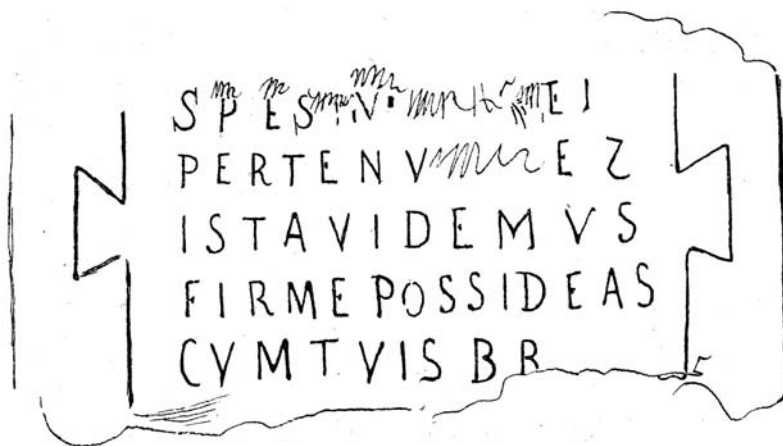 SPES
PERTENV
ISTAVIDEMVS
FIRMEPOSSIDEAS
CVMTVISBR